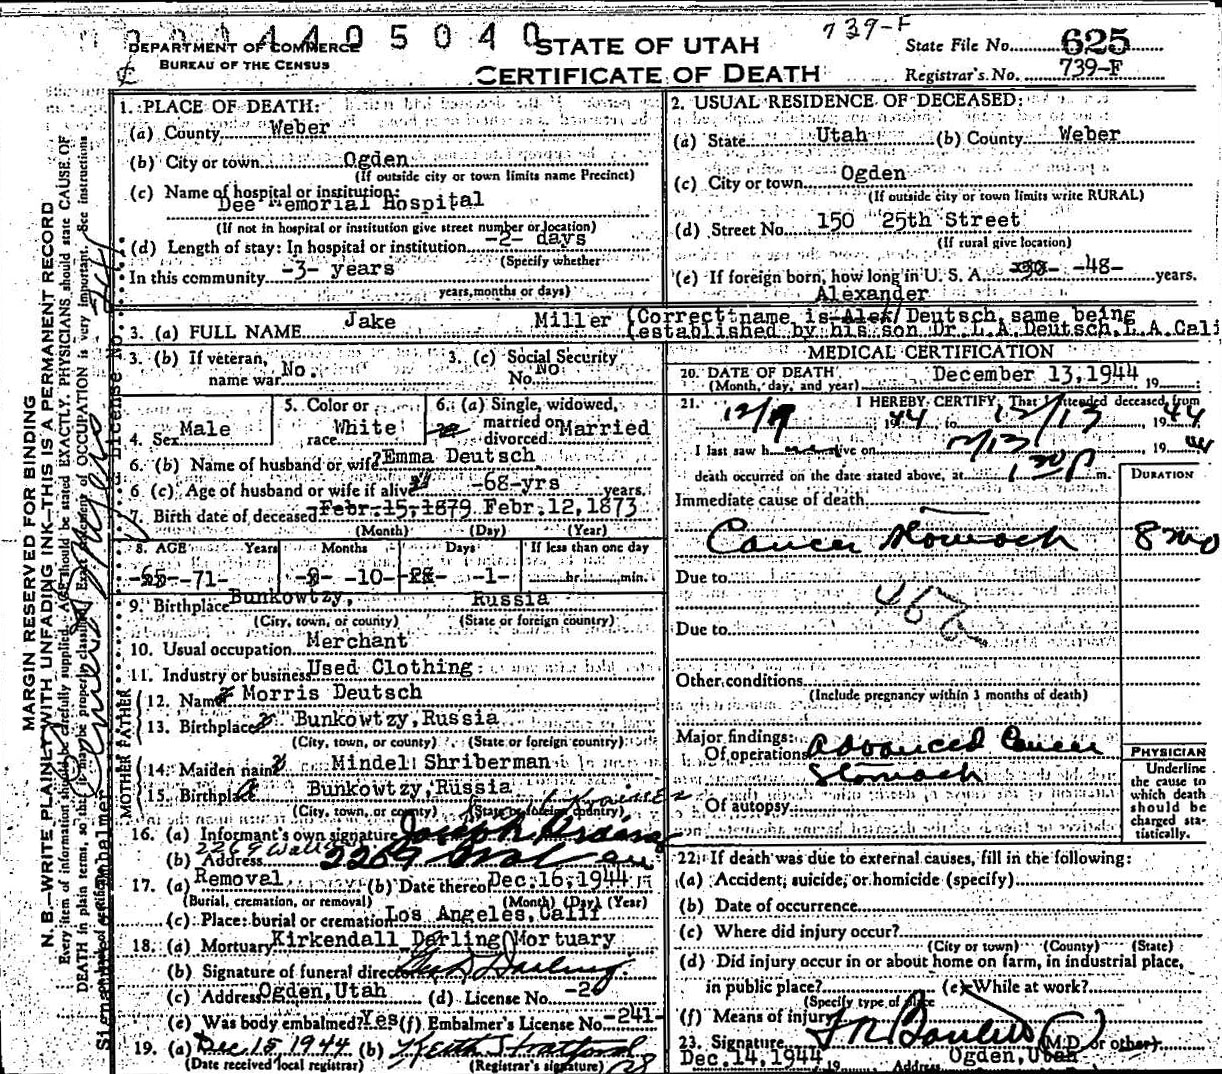 4 4 0 5 0 4 0
DEPARTMENT OF COMMERCE
BUREAU OF THE CENSUS
STATE OF UTAH
CERTIFICATE OF DEATH
739-F
State File No. 625
Registrar's No. 739-F
MARGIN RESERVED FOR BINDING
N. B.—WRITE PLAINLY WITH UNFADING INK—THIS IS A PERMANENT RECORD
Every item of information should be carefully supplied. AGE should be stated EXACTLY. PHYSICIANS should state CAUSE OF
DEATH in plain terms, so that it may be properly classified. Exact statement of OCCUPATION is very important. See instructions
Signature of Embalmer
License No.
1. PLACE OF DEATH:
(a) County Weber
(b) City or town Ogden
(If outside city or town limits name Precinct)
(c) Name of hospital or institution:
Dee Memorial Hospital
(If not in hospital or institution give street number or location)
(d) Length of stay: In hospital or institution -2- days
(Specify whether
In this community -3- years
years, months or days)
2. USUAL RESIDENCE OF DECEASED:
(a) State Utah (b) County Weber
(c) City or town Ogden
(If outside city or town limits write RURAL)
(d) Street No. 150 25th Street
(If rural give location)
(e) If foreign born, how long in U. S. A. -48- years.
Alexander
3. (a) FULL NAME Jake Miller (Correct name is Alex/ Deutsch, same being
(established by his son Dr. L.A. Deutsch, L.A. Cali
3. (b) If veteran, name war No.
3. (c) Social Security No. No
4. Sex Male
5. Color or race White
6. (a) Single, widowed, married or divorced Married
6. (b) Name of husband or wife Emma Deutsch
6 (c) Age of husband or wife if alive -68-yrs years.
7. Birth date of deceased Febr.15,1879 Febr.12,1873
(Month) (Day) (Year)
8. AGE Years Months Days If less than one day
-65- -71- -10- -1- hr. min.
9. Birthplace Bunkowtzy, Russia
(City, town, or county) (State or foreign country)
10. Usual occupation Merchant
11. Industry or business Used Clothing
FATHER
12. Name Morris Deutsch
13. Birthplace Bunkowtzy, Russia
(City, town, or county) (State or foreign country)
MOTHER
14. Maiden name Mindel Shriberman
15. Birthplace Bunkowtzy, Russia
(City, town, or county) (State or foreign country)
16. (a) Informant's own signature Joseph
(b) Address 2269
17. (a) Removal (b) Date thereof Dec.16,1944
(Burial, cremation, or removal) (Month) (Day) (Year)
(c) Place: burial or cremation Los Angeles, Calif
18. (a) Mortuary Kirkendall Darling Mortuary
(b) Signature of funeral director Darling
(c) Address Ogden, Utah (d) License No. -26
(e) Was body embalmed? Yes (f) Embalmer's License No. -241-
19. (a) Dec 15 1944 (b) Keith Stratford
(Date received local registrar) (Registrar's signature)
MEDICAL CERTIFICATION
20. DATE OF DEATH December 13, 1944 19
(Month, day, and year)
21. I HEREBY CERTIFY, That I attended deceased from
1944 to 12/13, 1944
I last saw h alive on 12/13 1944
death occurred on the date stated above, at 1 30 P m.
DURATION
Immediate cause of death
Cancer Stomach 8 mo
Due to
46b
Due to
Other conditions
(Include pregnancy within 3 months of death)
Major findings:
Of operations Advanced Cancer
Stomach
Of autopsy
PHYSICIAN
Underline
the cause to
which death
should be
charged sta-
tistically.
22. If death was due to external causes, fill in the following:
(a) Accident, suicide, or homicide (specify)
(b) Date of occurrence
(c) Where did injury occur?
(City or town) (County) (State)
(d) Did injury occur in or about home on farm, in industrial place,
in public place? (e) While at work?
(Specify type of place
(f) Means of injury
23. Signature (M.D. or other)
Dec. 14, 1944 19 Address Ogden, Utah